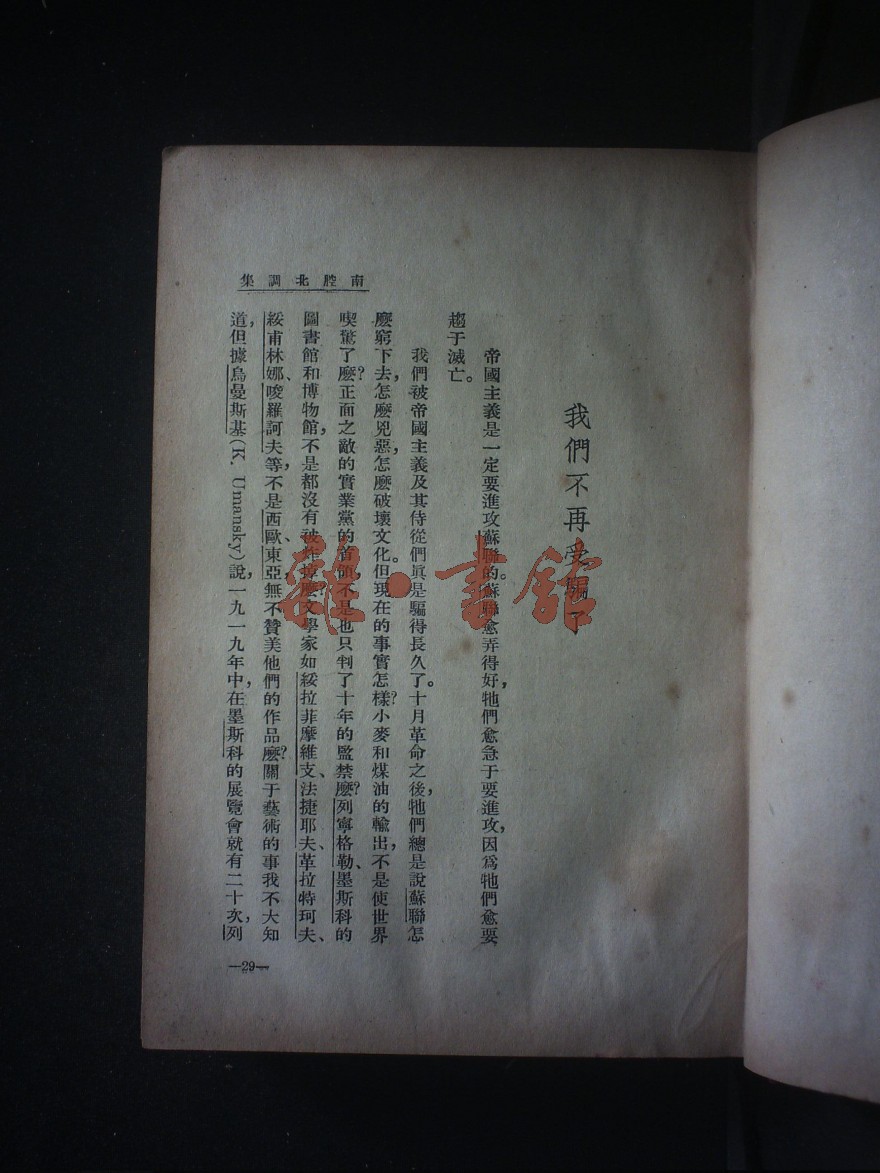 南腔北調集
我們不再受騙了
帝國主義是一定要進攻蘇聯的。蘇聯愈弄得好，牠們愈急于要進攻，因爲牠們愈要
趨于滅亡。
我們被帝國主義及其侍從們眞是騙得長久了。十月革命之後，牠們總是說蘇聯怎
麽窮下去，怎麽兇惡，怎麽破壞文化。但現在的事實怎樣？小麥和煤油的輸出，不是使世界
喫驚了麽？正面之敵的實業黨的首領，不是也只判了十年的監禁麽？列寧格勒、墨斯科的
圖書館和博物館，不是都沒有被炸掉麽？文學家如綏拉菲摩維支、法捷耶夫、革拉特珂夫、
綏甫林娜、唆羅訶夫等，不是西歐、東亞，無不贊美他們的作品麽？關于藝術的事我不大知
道，但據烏曼斯基（K. Umansky）說，一九一九年中，在墨斯科的展覽會就有二十次，列
—29—
雜·書館